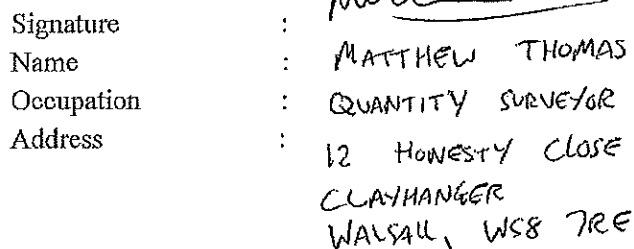 Signature :
Name : MATTHEW THOMAS
Occupation : QUANTITY SURVEYOR
Address : 12 HONESTY CLOSE
CLAYHANGER
WALSALL, WS8 7RE